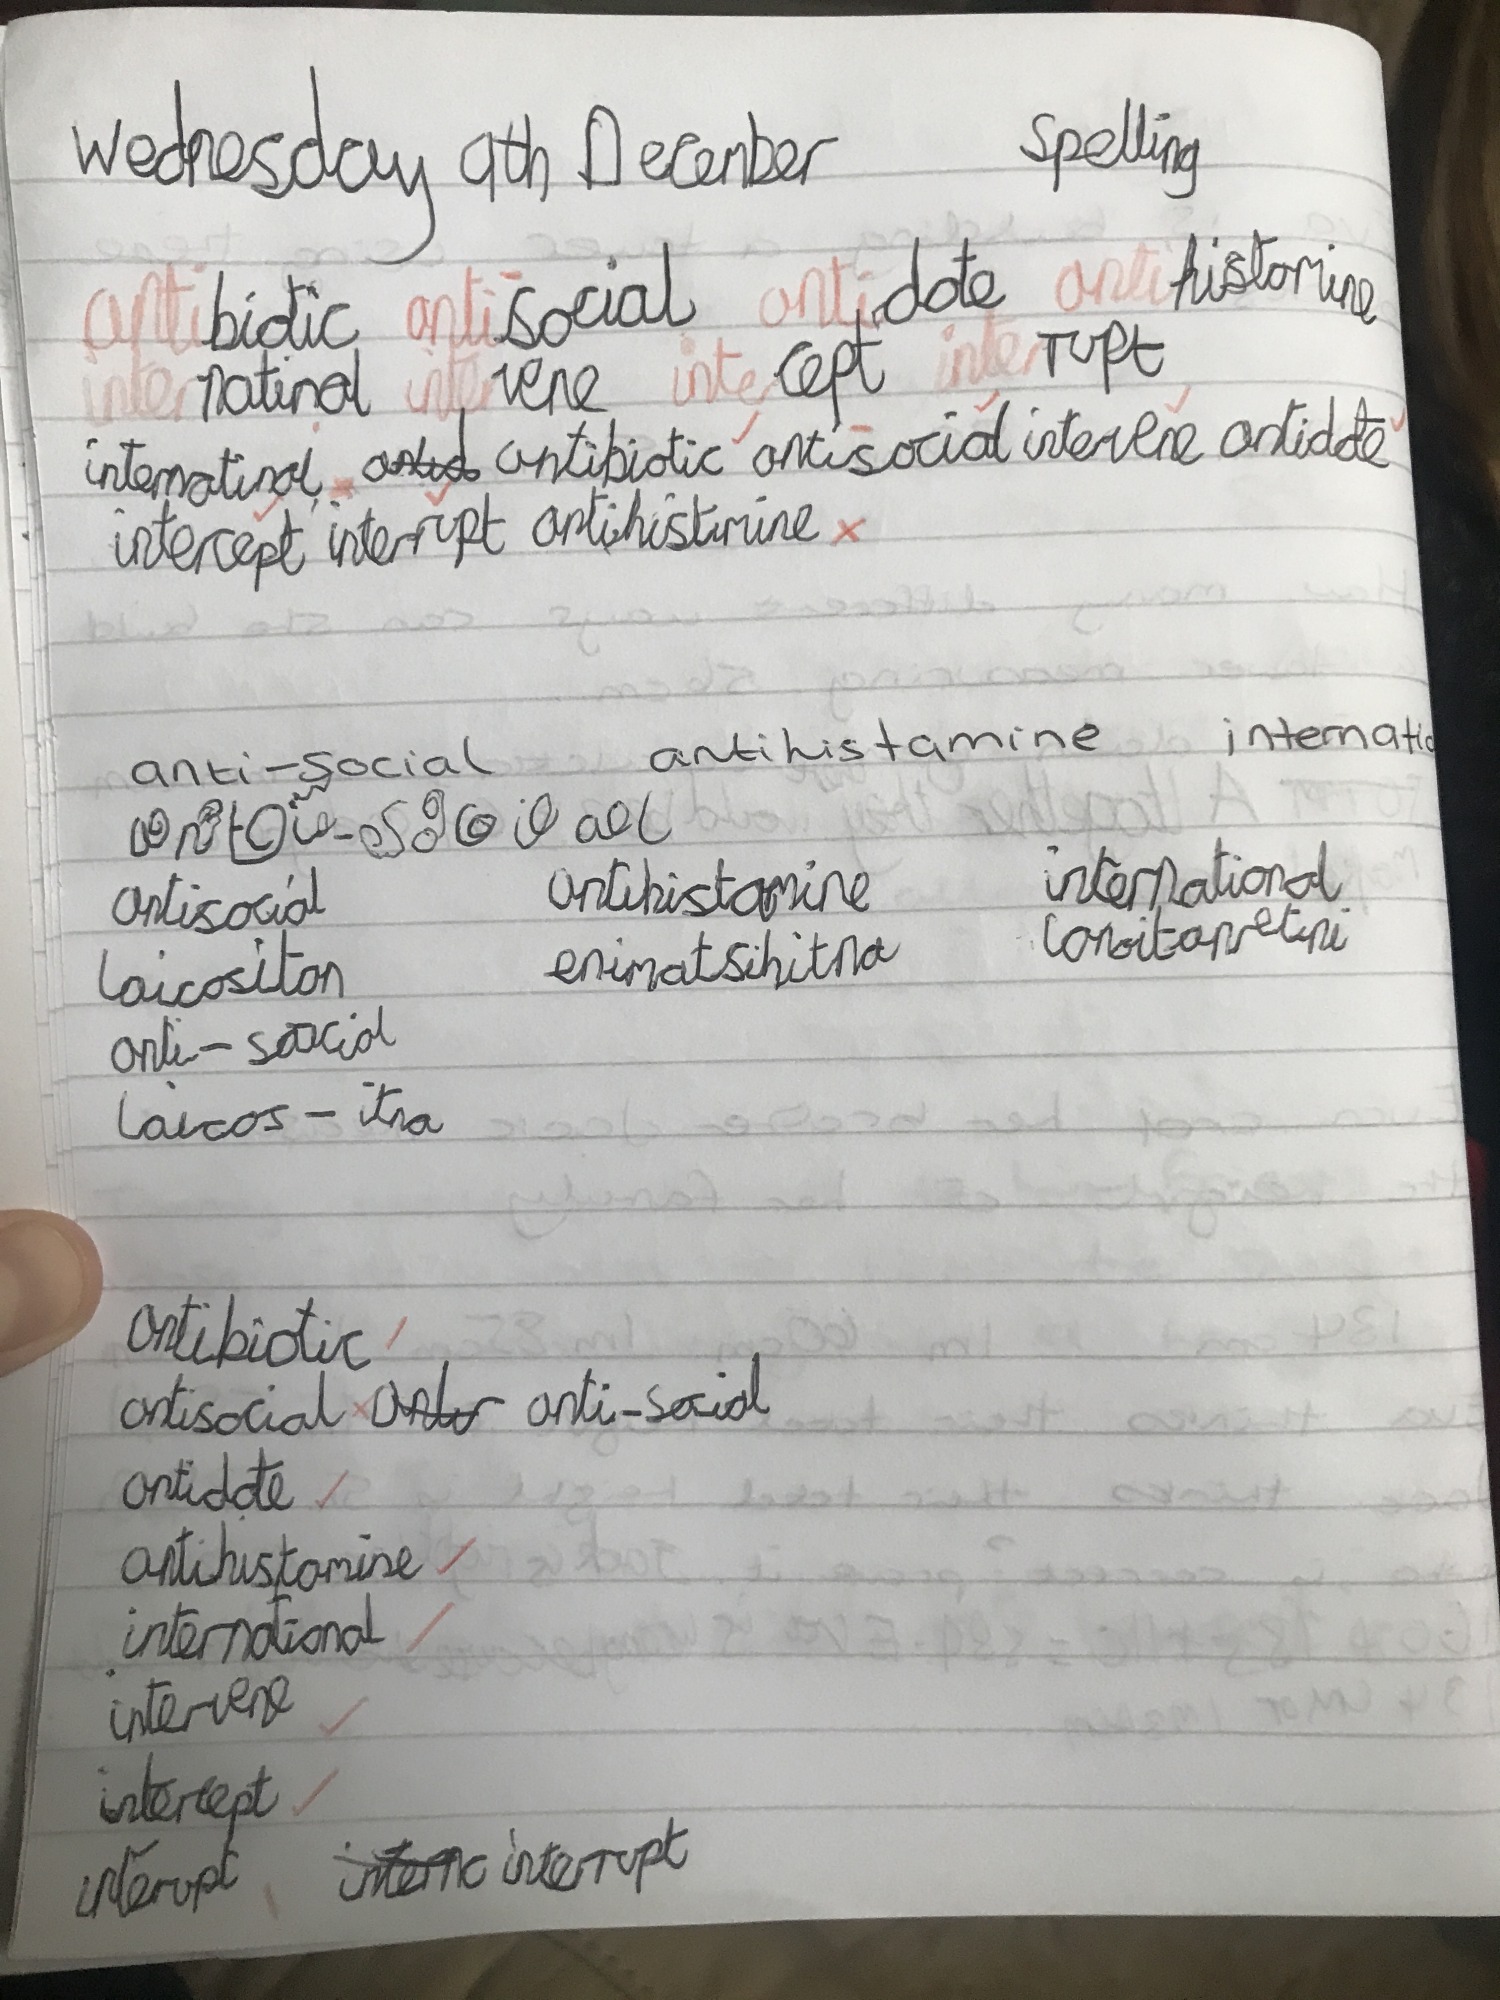 Wednesday 9th December Spelling
antibiotic anti-social antidote antihistomine
internatinal intervene intercept interrupt
internatinal antibiotic anti-social intervene antidote
intercept interrupt antihistimine
anti-social antihistamine internatio
anti-social
antisocial antihistamine international
laicositan enimatsihitna lanoitanretni
anti-social
laicos-itna
antibiotic
antisocial anti-social
antidote
antihistamine
international
intervene
intercept
interupt interrupt